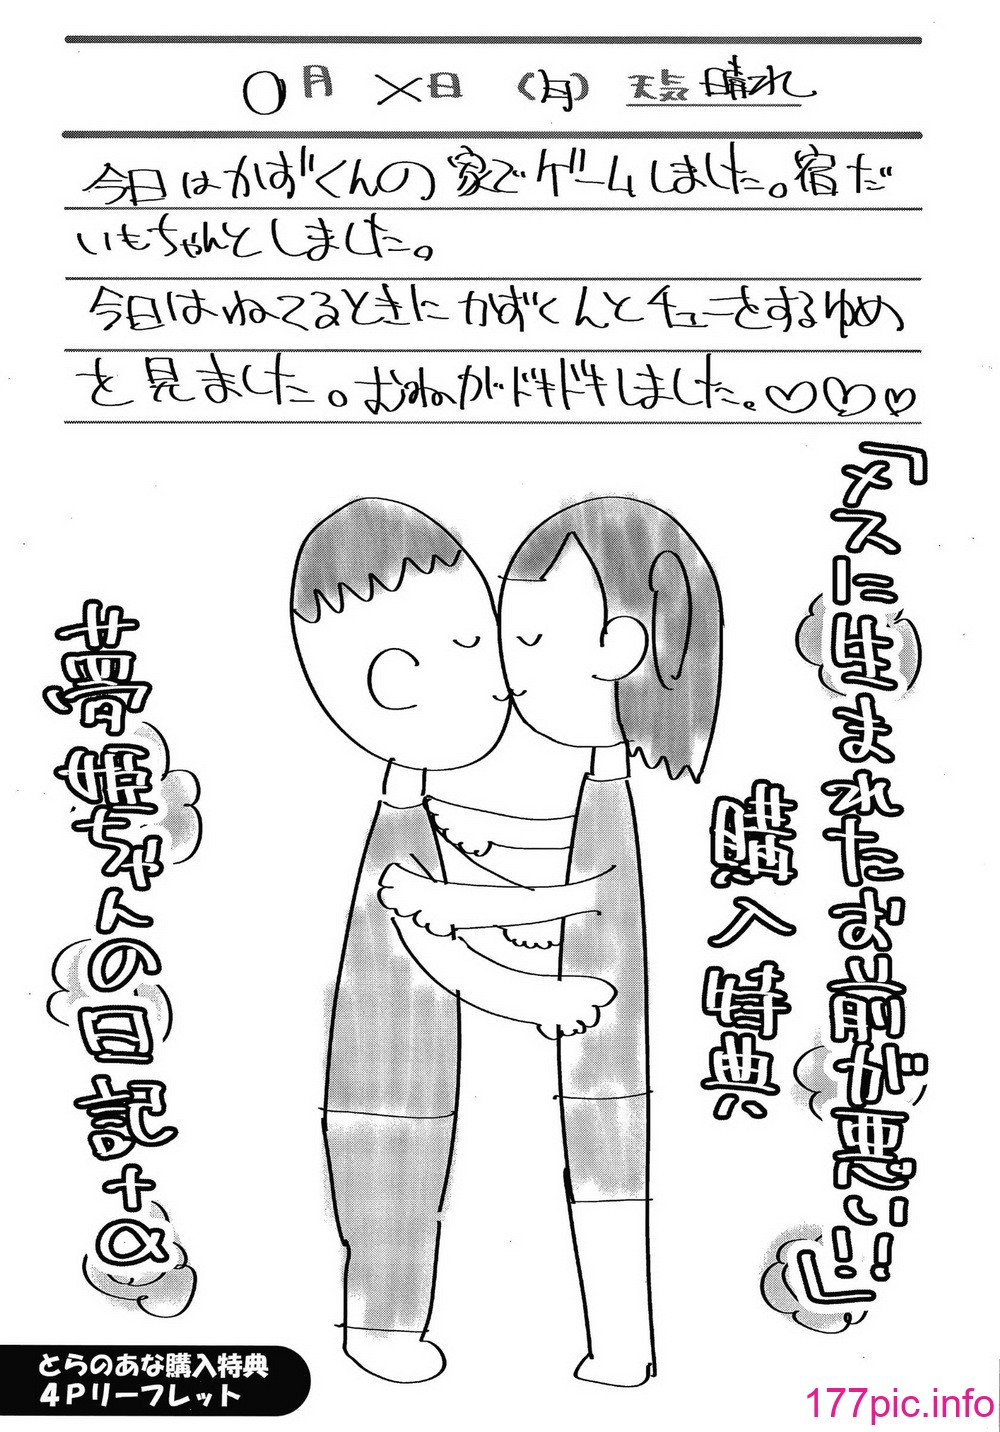 〇月 ×日 (月) 天気 晴れ
今日はかずくんの家でゲームしました。宿だ
いもちゃんとしました。
今日はねてるときにかずくんとチューをするゆめ
を見ました。むねがドキドキしました。♡♡♡
『メスに生まれたお前が悪い!!』
購入特典
夢姫ちゃんの日記+α
とらのあな購入特典
4Pリーフレット
177pic.info